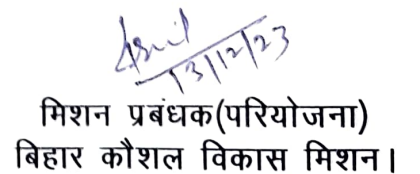 13/12/23
मिशन प्रबंधक(परियोजना)
बिहार कौशल विकास मिशन।